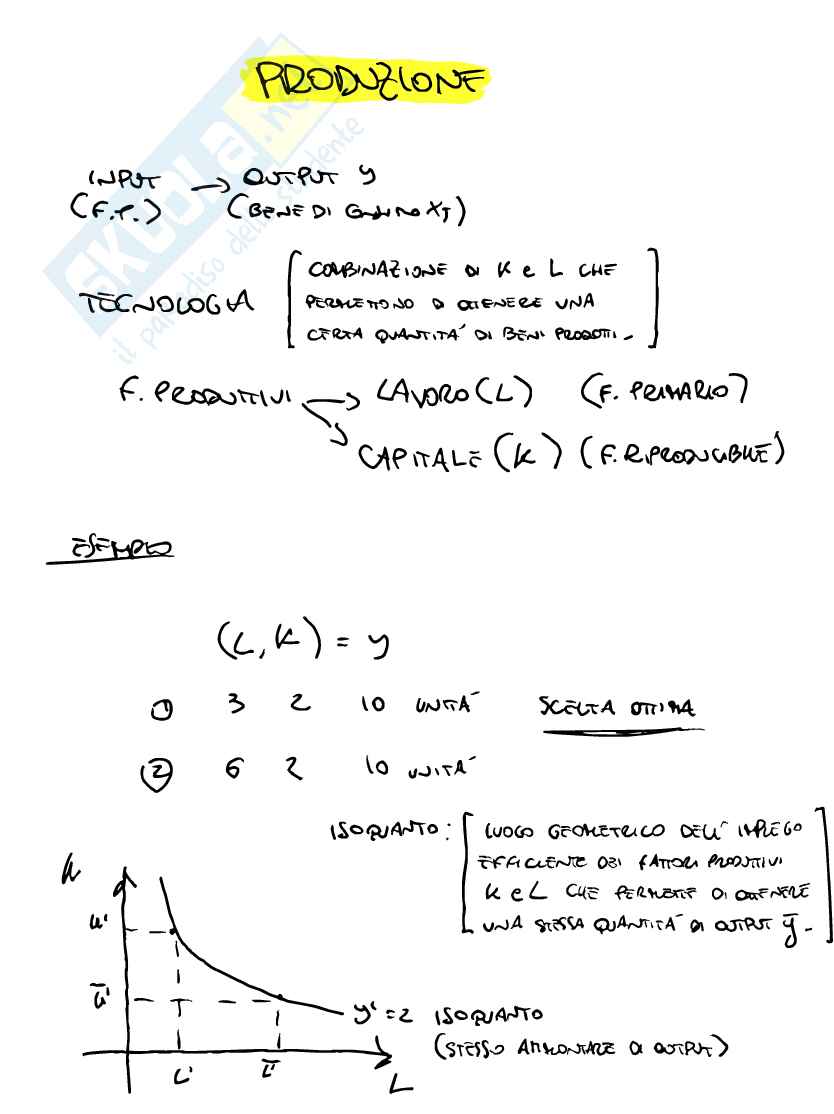 PRODUZIONE
INPUT → OUTPUT y
(F.P.) (BENE DI CONSUMO XJ)
TECNOLOGIA [COMBINAZIONE DI K e L CHE
PERMETTONO DI OTTENERE UNA
CERTA QUANTITÀ DI BENI PRODOTTI.]
F. PRODUTTIVI → LAVORO (L) (F. PRIMARIO)
→ CAPITALE (K) (F. RIPRODUCIBILE)
ESEMPIO
(L, K) = y
① 3 2 10 UNITÀ SCELTA OTTIMA
② 6 2 10 UNITÀ
ISOQUANTO: [LUOGO GEOMETRICO DELL'IMPIEGO
EFFICIENTE DEI FATTORI PRODUTTIVI
K e L CHE PERMETTE DI OTTENERE
UNA STESSA QUANTITÀ DI OUTPUT ȳ.]
K
K'
K̄'
y'=2 ISOQUANTO
(STESSO AMMONTARE DI OUTPUT)
L' L̄' L
SKUOLA.net
il paradiso dello studente